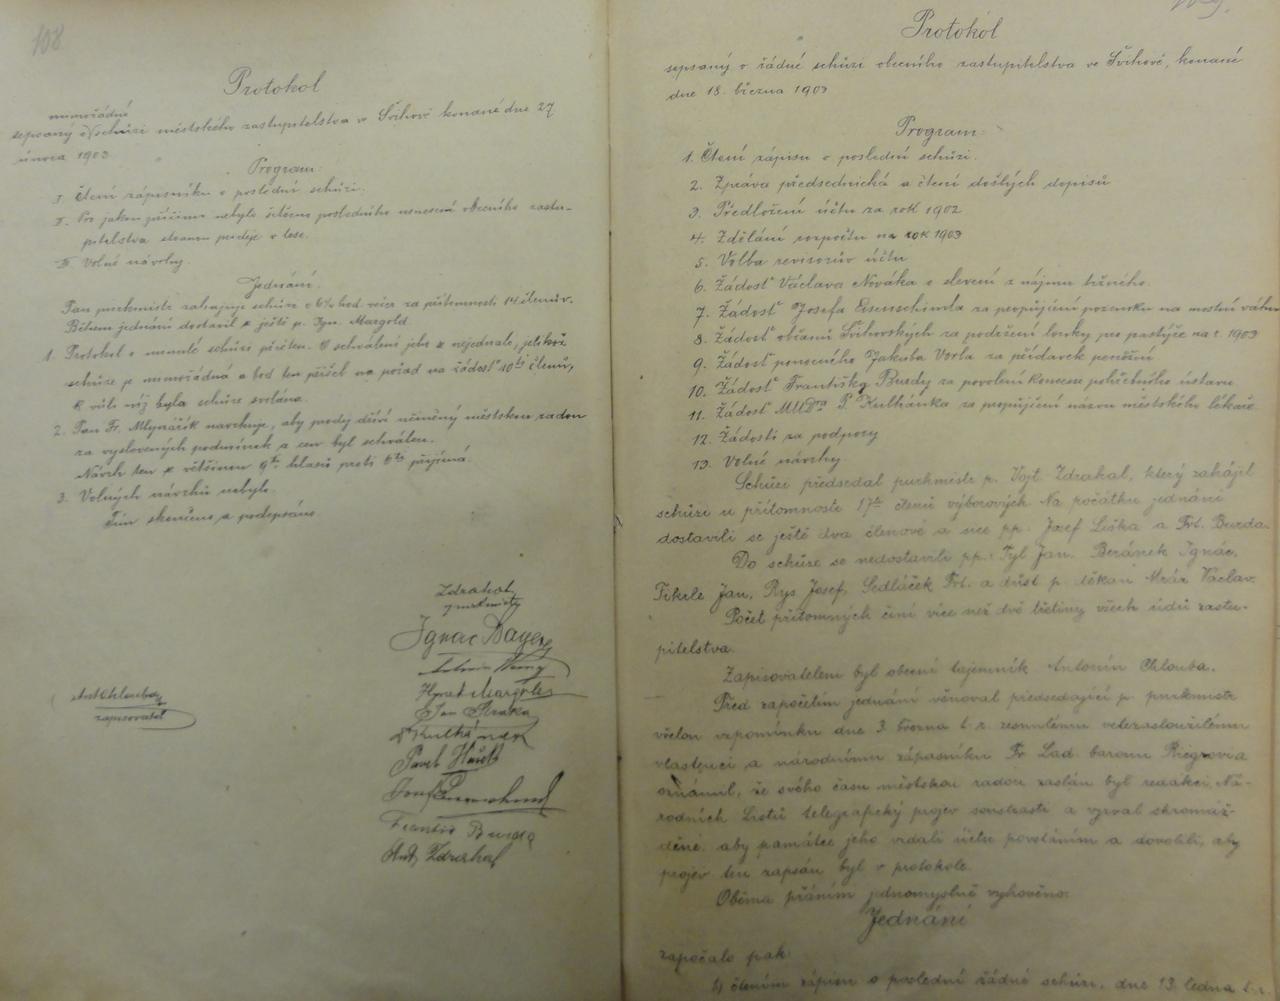 108
Protokol
mimořádné
sepsaný o schůzi městského zastupitelstva v Švihově konané dne 27
února 1903
Program:
I. Čtení zápisníku o poslední schůzi.
II. Pro jakou příčinu nebylo šetřeno posledního usnesení obecního zastu-
pitelstva stranou prodeje v lese.
III Volné návrhy.
Jednání.
Pan purkmistr zahajuje schůzi o 6½ hod. večer za přítomnosti 14 členův.
Během jednání dostavil se ještě p. Ign. Margold.
1. Protokol o minulé schůzi přečten. O schválení jeho se nejednalo, jelikož
schůze je mimořádná a bod ten přišel na pořad na žádost 10ti členův,
k vůli níž byla schůze svolána.
2. Pan Fr. Mlynařík navrhuje, aby prodej dříví učiněný městskou radou
za vyslovených podmínek a cen byl schválen.
Návrh ten se většinou 9ti hlasů proti 6ti přijímá.
3. Volných návrhů nebylo.
Tím skončeno a podepsáno.
Zdrahal
purkmistr
Ignac Bayer
Antonín
Ignat Margold
Jan Straka
Dr Kulhánek
Pavel
Josef
František Burda
Ant. Zdrahal
Ant Chlouba
zapisovatel
109.
Protokol
sepsaný o řádné schůzi obecního zastupitelstva ve Švihově, konané
dne 18. března 1903
Program:
1. Čtení zápisu o poslední schůzi.
2. Zpráva předsednická a čtení došlých dopisů
3. Předložení účtu za rok 1902
4. Zdělání rozpočtu na rok 1903
5. Volba revisorův účtu
6. Žádosť Václava Nováka o slevení z nájmu tržného.
7. Žádosť Josefa Eisenschimla za propůjčení pozemku na mostní váhu
8. Žádosť občanů Švihovských za podržení louky pro pastýře na r. 1903
9. Žádosť ponocného Jakuba Vorla za přídavek peněžní
10. Žádosť Františka Burdy za povolení koncese pohřebního ústavu
11. Žádosť MUDra P. Kulhánka za propůjčení názvu městského lékaře
12. Žádosti za podpory
13. Volné návrhy.
Schůzi předsedal purkmistr p. Vojt. Zdrahal, který zahájil
schůzi u přítomnosti 17ti členů výborových Na počátku jednání
dostavili se ještě dva členové a sice pp. Josef Liška a Frt. Burda.
Do schůze se nedostavili pp.: Tyl Jan, Beránek Ignác,
Fikrle Jan, Rys Josef, Sedláček Frt. a důst p. děkan Mráz Václav.
Počet přítomných činí více než dvě třetiny všech údů zastu-
pitelstva.
Zapisovatelem byl obecní tajemník Antonín Chlouba.
Před započetím jednání věnoval předsedající p. purkmistr
vřelou vzpomínku dne 3. března t. r. zesnulému velezasloužilému
vlastenci a národnímu zápasníku Fr Lad. baronu Riegrovi a
oznámil, že svého času městskou radou zaslán byl redakci Ná-
rodních Listů telegrafický projev soustrasti a vyzval shromáž-
děné, aby památce jeho vzdali úctu povstáním a dovolili, aby
projev ten zapsán byl v protokole.
Oběma přáním jednomyslně vyhověno.
Jednání
započalo pak:
1) čtením zápisu o poslední řádné schůzi, dne 13. ledna t. r.